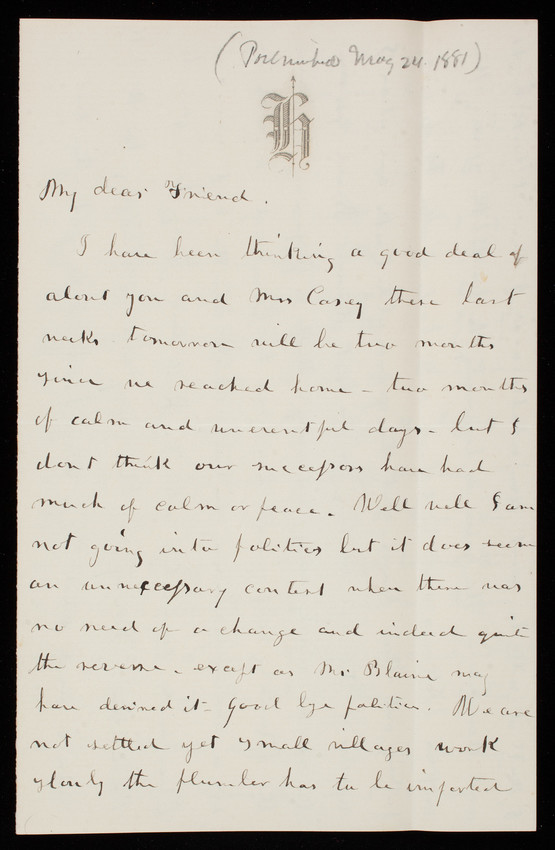 (Postmarked May 24. 1881)
H
My dear Friend.
I have been thinking a good deal of
about you and Mrs Casey these last
weeks. tomorrow will be two months
since we reached home - two months
of calm and uneventful days - but I
dont think our successors have had
much of calm or peace. Well well I am
not going into politics but it does seem
an unnecessary contest when there was
no need of a change and indeed quite
the reverse - except as Mr Blaine may
have desired it - Good bye politics. We are
not settled yet small villages work
slowly the plumber has to be imported